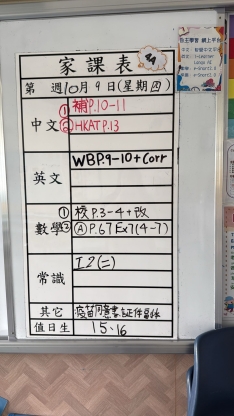 家課表
第 週10月9日(星期四)
中文 ①補P.10-11
②HKAT P.13
英文 WBP.9-10+Corr
數學 ①校P.3-4+改
②Ⓐ P.67 Ex7(4-7)
常識 I2(二)
其它 疫苗同意書
值日生 15、16
自主學習 網上平台